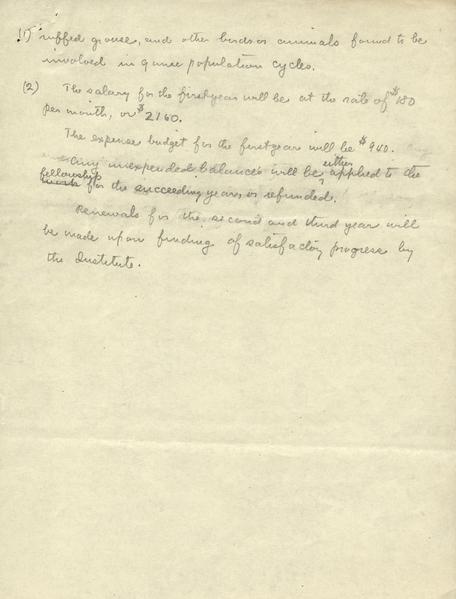 (1) ruffed grouse, and other birds or animals found to be
involved in grouse population cycles.
(2) The salary for the first year will be at the rate of $180
per month, or $2160.
The expense budget for the first year will be $940. Any
either
Any unexpended balances will be, applied to the
fellowship
work for the succeeding year, or refunded.
Renewals for the second and third year will
be made upon finding of satisfactory progress by
the Institute.